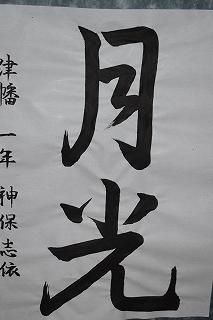 月光
津幡 一年 神保志依